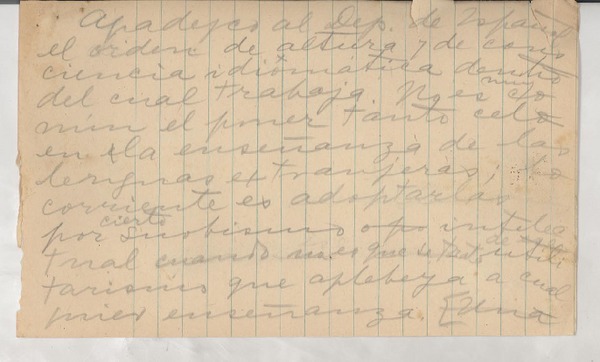 Agradezco al Dep. de Español
el orden de altura y de cons
ciencia idiomática dentro
del cual trabaja. No es muy co
mún el poner tanto celo
en la enseñanza de las
lenguas extranjeras; lo
corriente es adoptarlas
por cierto snobismo intelec
tual cuando no es que se trata de utili
tarismo que aplebeya a cual
quier enseñanza. Una